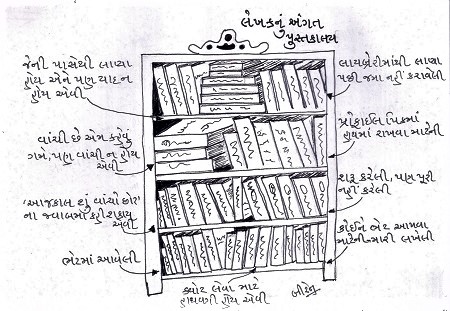 લેખકનું અંગત
પુસ્તકાલય
જેની પાસેથી લાવ્યા
હોય એને પણ યાદ ન
હોય એવી
વાંચી છે એમ કહેવું
ગમે, પણ વાંચી ન હોય
એવી
'આજકાલ શું વાંચો છો?'
ના જવાબમાં કહી શકાય
એવી
ભેટમાં આવેલી
ક્વોટ લેવા માટે
હાથવગી હોય એવી
લાયબ્રેરીમાંથી લાવ્યા
પછી જમા નહીં કરાવેલી
પ્રોફાઈલ પિકમાં
હાથમાં રાખવા માટેની
શરૂ કરેલી, પણ પૂરી
નહીં કરેલી
કોઈને ભેટ આપવા
માટેની-મારી લખેલી
બીરેન